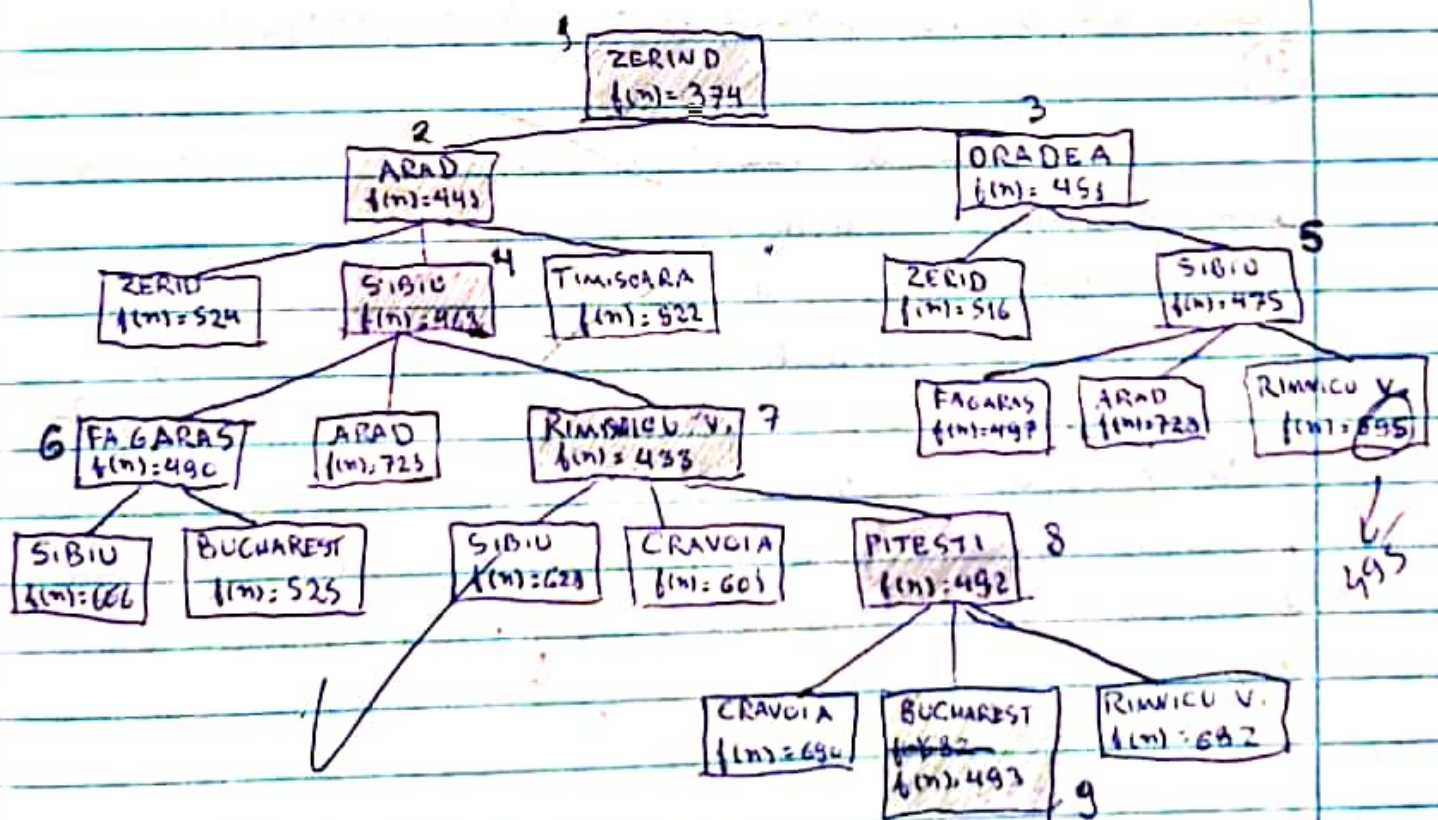 1
ZERIND
f(n)=374
2
3
ARAD
f(n)=441
ORADEA
f(n)=451
4
5
ZERID
f(n)=524
SIBIU
TIMISOARA
f(n)=522
ZERID
f(n)=516
SIBIU
f(n)=475
6
FAGARAS
f(n)=490
ARAD
f(n)=721
7
f(n)=433
FAGARAS
f(n)=497
ARAD
f(n)=729
RIMNICU V.
f(n)=595
493
SIBIU
f(n)=666
BUCHAREST
f(n)=525
SIBIU
f(n)=629
CRAVOIA
f(n)=601
PITESTI
f(n)=492
8
CRAVOIA
f(n)=690
BUCHAREST
f(n)=493
9
RIMNICU V.
f(n)=682